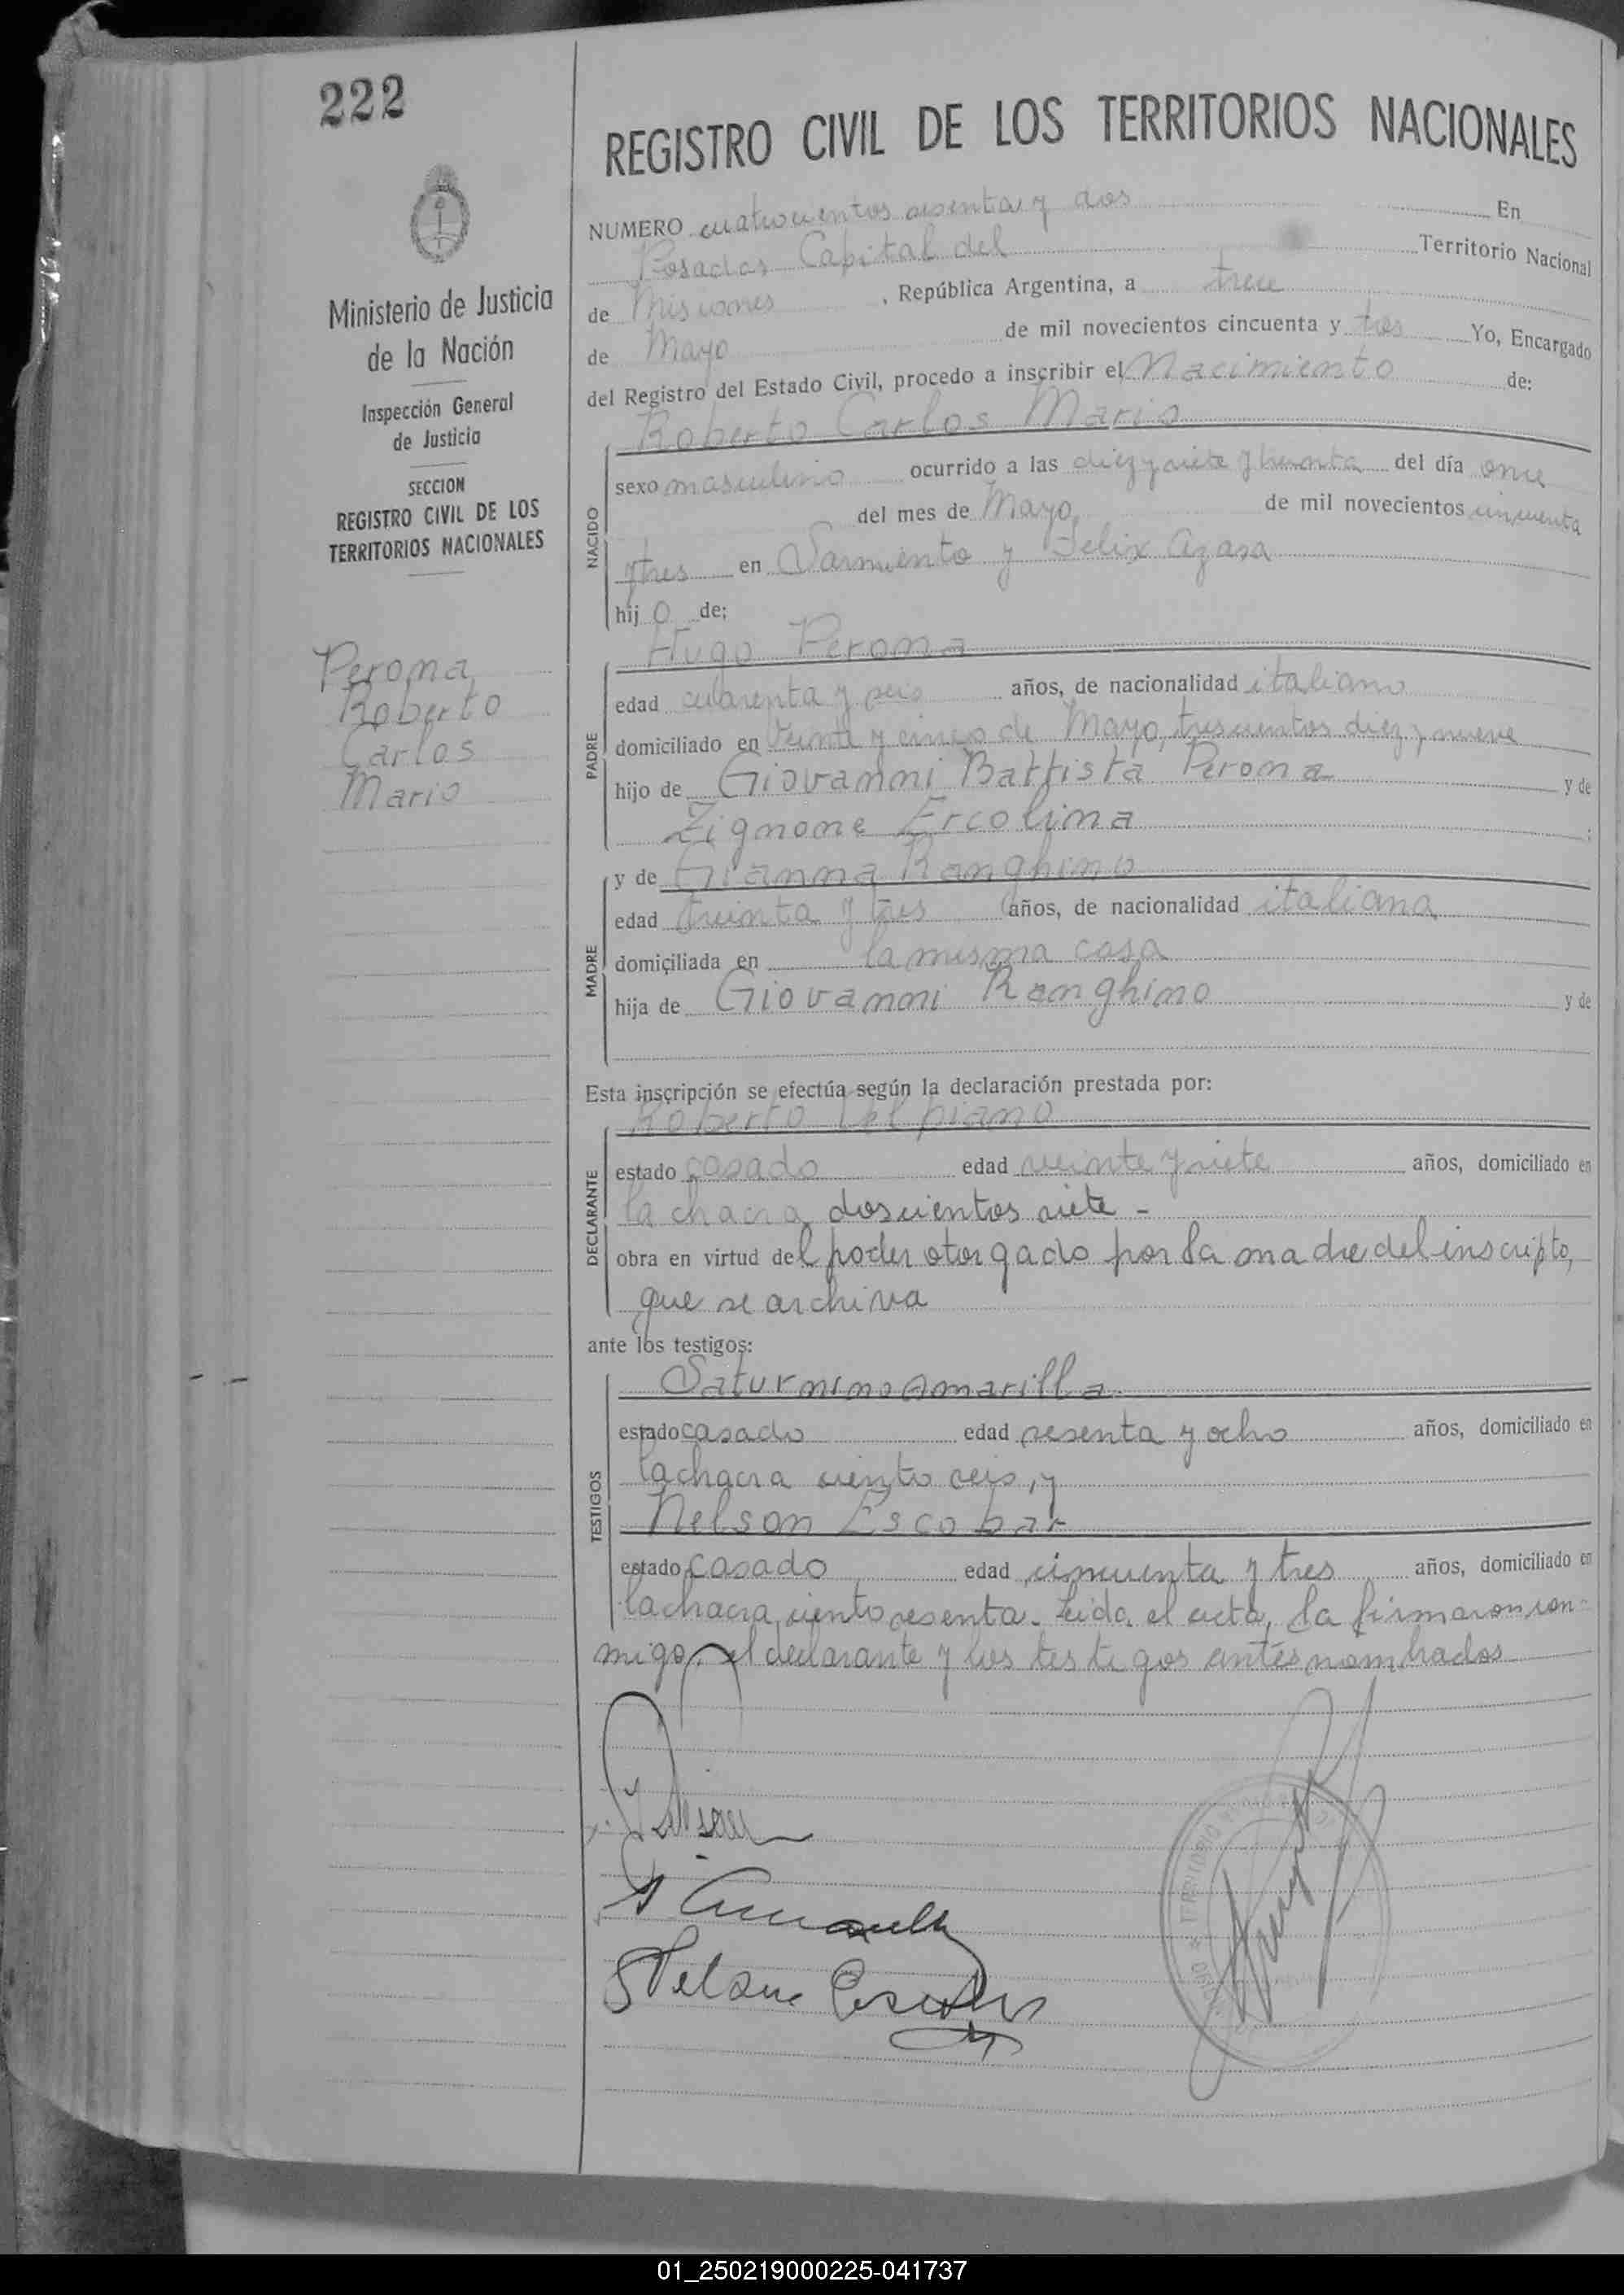 222
REGISTRO CIVIL DE LOS TERRITORIOS NACIONALES
NUMERO cuatrocientos sesenta y dos En
Posadas Capital del Territorio Nacional
de Misiones, República Argentina, a trece
de Mayo de mil novecientos cincuenta y tres Yo, Encargado
del Registro del Estado Civil, procedo a inscribir el Nacimiento de:
Roberto Carlos Mario
Ministerio de Justicia
de la Nación
Inspección General
de Justicia
SECCION
REGISTRO CIVIL DE LOS
TERRITORIOS NACIONALES
Perona
Roberto
Carlos
Mario
NACIDO
sexo masculino ocurrido a las diez y siete y treinta del día once
del mes de Mayo de mil novecientos cincuenta
y tres en Sarmiento y Felix Azara
hijo de;
Hugo Perona
PADRE
edad cuarenta y seis años, de nacionalidad italiano
domiciliado en Veinte y cinco de Mayo, trescientos diez y nueve
hijo de Giovanni Battista Perona y de
Zignone Ercolina ;
MADRE
y de Gianna Ranghino
edad treinta y tres años, de nacionalidad italiana
domiciliada en la misma casa
hija de Giovanni Ranghino y de
Esta inscripción se efectúa según la declaración prestada por:
Roberto Delpiano
DECLARANTE
estado casado edad veinte y siete años, domiciliado en
la chacra doscientos siete -
obra en virtud del poder otorgado por la madre del inscripto,
que se archiva
ante los testigos:
TESTIGOS
Saturnino Amarilla
estado casado edad sesenta y ocho años, domiciliado en
la chacra ciento seis, y
Nelson Escobar
estado casado edad cincuenta y tres años, domiciliado en
la chacra ciento sesenta. Leida el acta, la firmaron con-
migo, el declarante y los testigos antes nombrados
S Amarilla
Nelson Escobar
TERRITORIO
01_250219000225-041737